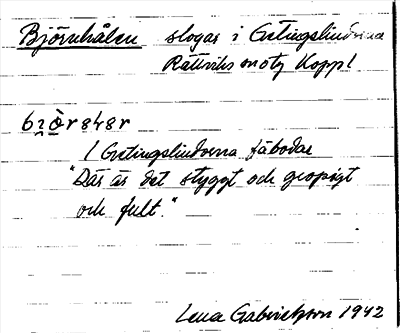 Björnhålen slogar i Getingslindorna
Rättviks
I Getingslindorna fäbodar
"Där är det styggt och gropigt
och fult."
Lena Gabrielsson 1942